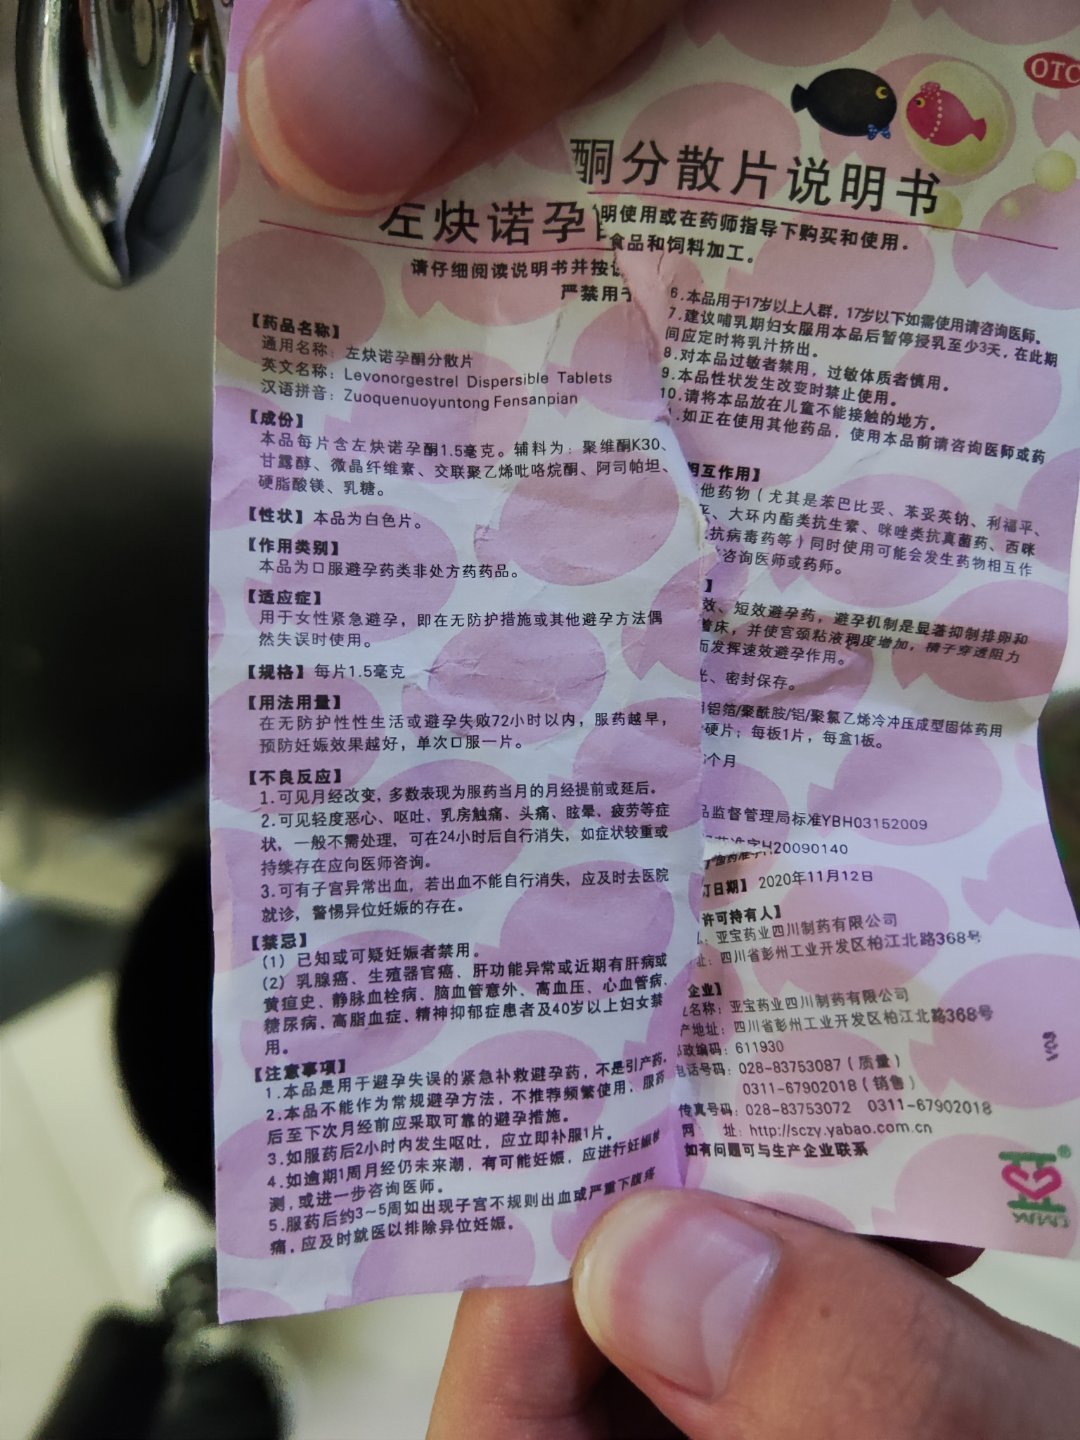 OTC
酮分散片说明书
左炔诺孕
明使用或在药师指导下购买和使用。
请仔细阅读说明书并按
食品和饲料加工。
严禁用于
【药品名称】
通用名称：左炔诺孕酮分散片
英文名称：Levonorgestrel Dispersible Tablets
汉语拼音：Zuoquenuoyuntong Fensanpian
【成份】
本品每片含左炔诺孕酮1.5毫克。辅料为：聚维酮K30、
甘露醇、微晶纤维素、交联聚乙烯吡咯烷酮、阿司帕坦、
硬脂酸镁、乳糖。
【性状】本品为白色片。
【作用类别】
本品为口服避孕药类非处方药药品。
【适应症】
用于女性紧急避孕，即在无防护措施或其他避孕方法偶
然失误时使用。
【规格】每片1.5毫克
【用法用量】
在无防护性性生活或避孕失败72小时以内，服药越早，
预防妊娠效果越好，单次口服一片。
【不良反应】
1.可见月经改变，多数表现为服药当月的月经提前或延后。
2.可见轻度恶心、呕吐、乳房触痛、头痛、眩晕、疲劳等症
状，一般不需处理，可在24小时后自行消失，如症状较重或
持续存在应向医师咨询。
3.可有子宫异常出血，若出血不能自行消失，应及时去医院
就诊，警惕异位妊娠的存在。
【禁忌】
(1) 已知或可疑妊娠者禁用。
(2) 乳腺癌、生殖器官癌、肝功能异常或近期有肝病或
黄疸史、静脉血栓病、脑血管意外、高血压、心血管病、
糖尿病、高脂血症、精神抑郁症患者及40岁以上妇女禁
用。
【注意事项】
1.本品是用于避孕失误的紧急补救避孕药，不是引产药。
2.本品不能作为常规避孕方法，不推荐频繁使用，服药
后至下次月经前应采取可靠的避孕措施。
3.如服药后2小时内发生呕吐，应立即补服1片。
4.如逾期1周月经仍未来潮，有可能妊娠，应进行妊娠检
测，或进一步咨询医师。
5.服药后约3~5周如出现子宫不规则出血或严重下腹疼
痛，应及时就医以排除异位妊娠。
6.本品用于17岁以上人群，17岁以下如需使用请咨询医师。
7.建议哺乳期妇女服用本品后暂停授乳至少3天，在此期
间应定时将乳汁挤出。
8.对本品过敏者禁用，过敏体质者慎用。
9.本品性状发生改变时禁止使用。
10.请将本品放在儿童不能接触的地方。
.如正在使用其他药品，使用本品前请咨询医师或药
相互作用】
他药物（尤其是苯巴比妥、苯妥英钠、利福平、
平、大环内酯类抗生素、咪唑类抗真菌药、西咪
抗病毒药等）同时使用可能会发生药物相互作
咨询医师或药师。
】
效、短效避孕药，避孕机制是显著抑制排卵和
着床，并使宫颈粘液稠度增加，精子穿透阻力
而发挥速效避孕作用。
光、密封保存。
用铝箔/聚酰胺/铝/聚氯乙烯冷冲压成型固体药用
硬片；每板1片，每盒1板。
个月
品监督管理局标准YBH03152009
国药准字H20090140
订日期】 2020年11月12日
许可持有人】
：亚宝药业四川制药有限公司
址：四川省彭州工业开发区柏江北路368号
企业】
名称：亚宝药业四川制药有限公司
产地址：四川省彭州工业开发区柏江北路368号
邮政编码：611930
电话号码：028-83753087（质量）
0311-67902018（销售）
传真号码：028-83753072 0311-67902018
网 址：http://sczy.yabao.com.cn
如有问题可与生产企业联系